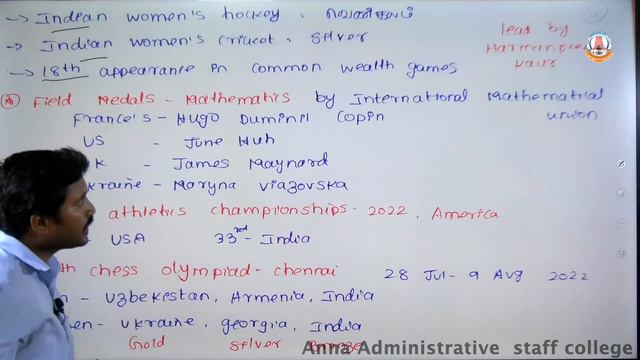 → Indian women's hockey. வெண்கலம்
→ Indian women's cricket. Silver
lead by Harmanpreet Kaur
→ 18th appearance in common wealth games
Field Medals - Mathematics by International Mathematical union
France's - Hugo Duminil Copin
US - June Huh
K - James Maynard
kraine - Maryna Viazovska
athletics championships - 2022, America
USA 33rd - India
th chess olympiad - chennai 28 Jul - 9 Aug 2022
n - Uzbekestan, Armenia, India
en - Ukraine, georgia, India
Gold Silver Bronze
Anna Administrative staff college